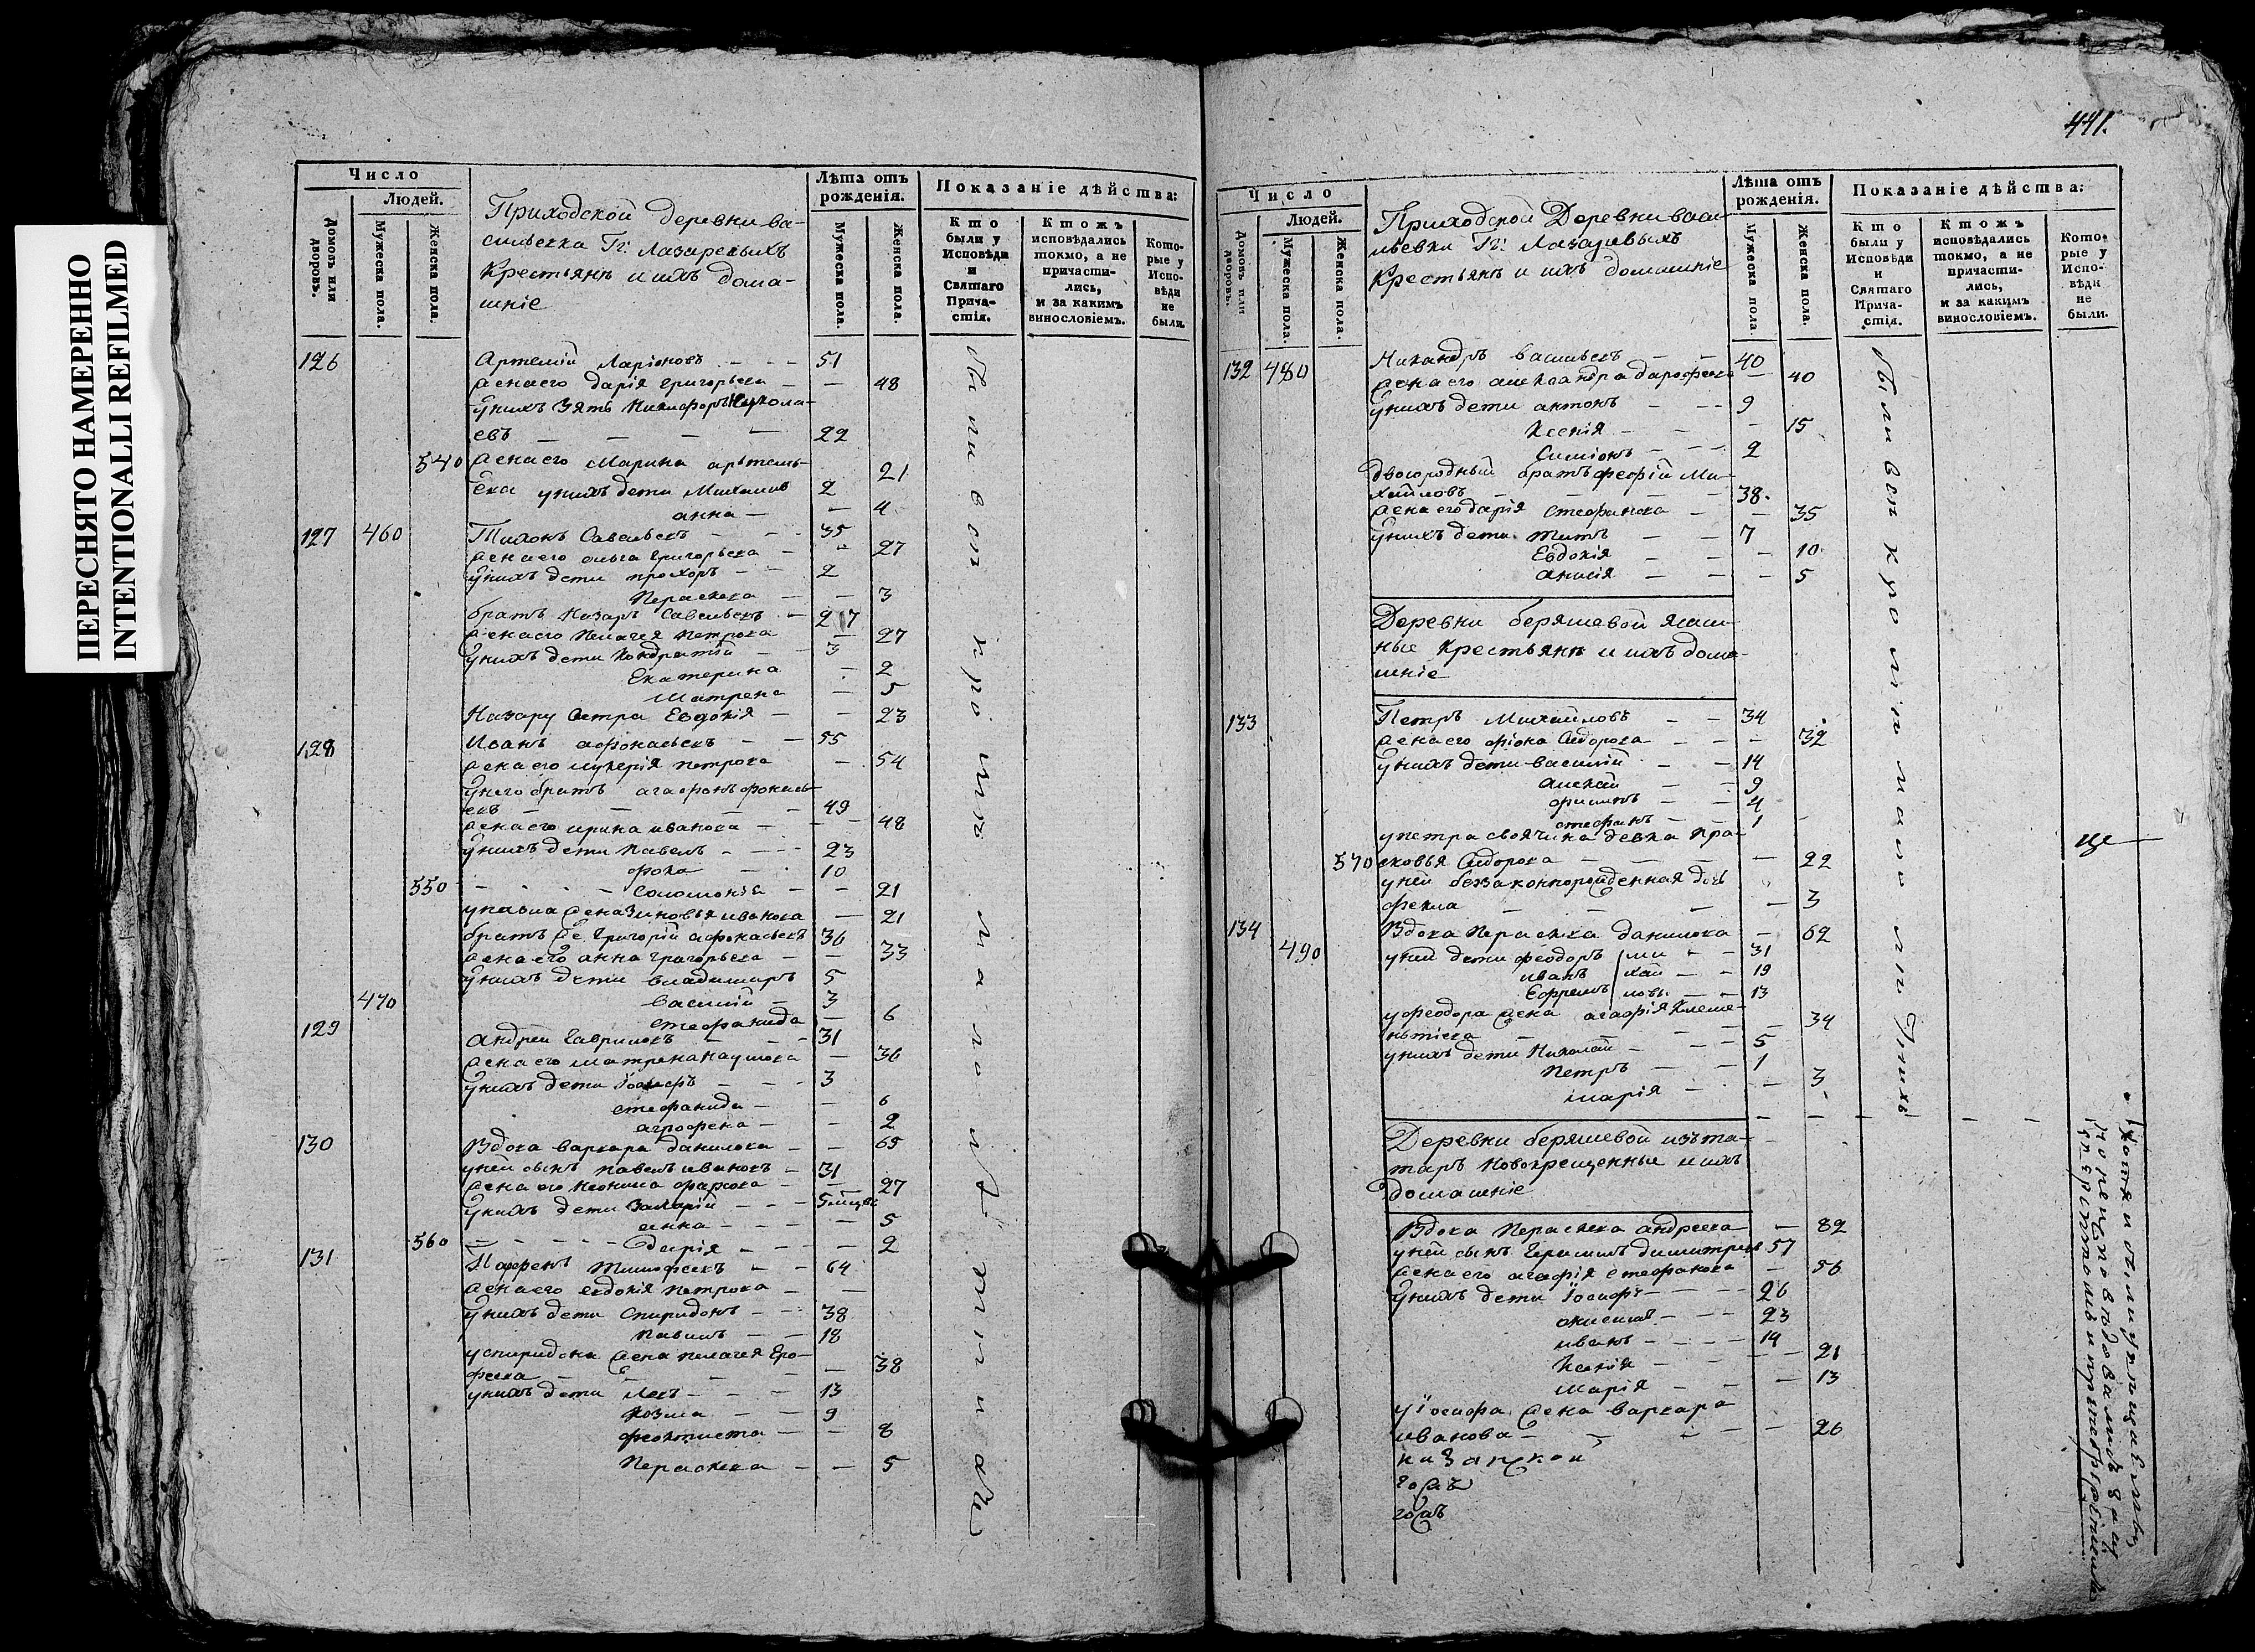 ПЕРЕСНЯТО НАМЕРЕННО
INTENTIONALLI REFILMED
Число
Людей.
Домовъ или дворовъ.
Мужеска пола.
Женска пола.
Приходской деревни ва-
сильевка Гг: Лазаревыхъ
Крестьянъ и ихъ дома-
шніе
Лѣта отъ рожденія.
Мужеска пола.
Женска пола.
Показаніе дѣйства:
Кто были у Исповѣди и Святаго Прича-стія.
Ктожъ исповѣдались токмо, а не причасти-лись, и за какимъ винословіемъ.
Кото-рые у Испо-вѣди не были.
126 Артемій Ларіоновъ 51
жена его дарія григорьева 48
у нихъ зять Никифоръ Никола-
евъ 22
540 жена его Марина артемь-
21
ева у нихъ дети Михаилъ 2
анна 4
127 460 Тихонъ Савельевъ 35
жена его ольга григорьева 27
у нихъ дети прохоръ 2
Параскева 3
братъ Назаръ Савельевъ 27
жена его Пелагея петрова 27
у нихъ дети Кондратій 3
Екатерина 2
Матрена 5
Назару сестра Евдокія 23
128 Иванъ афонасьевъ 55
жена его лукерія петрова 54
у него братъ агафонъ афонась-
евъ 49
жена его ирина иванова 48
у нихъ дети павелъ 23
фока 10
550 соломонія 21
у павла жена Зиновья иванова 21
братъ же григорій афонасьевъ 36
жена его анна григорьева 33
у нихъ дети владимиръ 5
470 василій 3
стефанида 6
129 андрей Гавриловъ 31
жена его матрена наумова 36
у нихъ дети Іосифъ 3
стефанида 6
агрофена 2
130 Вдова варвара данилова 65
у ней сынъ павелъ ивановъ 31
жена его неонила фирсова 27
у нихъ дети Захарій 5 мцвъ
анна 5
560 дарія 2
131 Парфенъ тимофеевъ 64
жена его евдокія петрова
у нихъ дети спиридонъ 38
павилъ 18
у спиридона жена пелагея Еро-
феева 38
у нихъ дети Левъ 13
козма 9
феоктиста 8
Параскева 5
441.
Число
Людей.
Домовъ или дворовъ.
Мужеска пола.
Женска пола.
Приходской Деревни васи-
льевки Гг: Лазаревыхъ
Крестьянъ и ихъ домашніе
Лѣта отъ рожденія.
Мужеска пола.
Женска пола.
Показаніе дѣйства:
Кто были у Исповѣди и Святаго Прича-стія.
Ктожъ исповѣдались токмо, а не причасти-лись, и за какимъ винословіемъ.
Кото-рые у Испо-вѣди не были.
132 480 Никандръ васильевъ 40
жена его александра дарофеева 40
у нихъ дети антонъ 9
Ксенія 15
Симіонъ 2
двоюродный братъ Ми-
хайловъ 38
жена его дарія стефанова 35
у нихъ дети титъ 7
Евдокія 10
анисія 5
Деревни беряшевой ясаш-
ные Крестьянъ и ихъ дома-
шніе
133 Петръ Михайловъ 34
жена его фіона Сидорова 32
у нихъ дети василій 14
алексей 9
филипъ 4
стефанъ 1
у петра своячина девка пра-
570 сковья Сидорова 22
у ней беззаконнорожденная дочь
фекла 3
134 Вдова Параскева данилова 62
490 у ней дети феодоръ ми 31
иванъ хаи 19
Ефремъ ловы 13
у феодора жена агафія Клеме-
нтіева 34
у нихъ дети Николай 5
Петръ 1
марія 3
Деревни беряшевой изъ та-
таръ новокрещенные и ихъ
домашніе
Вдова Параскева андреева 82
у ней сынъ герасимъ димитріевъ 57
жена его агафія стефанова 56
у нихъ дети Іосифъ 26
алексей 23
иванъ 14
Ксенія 21
Марія 13
у Іосифа жена варвара
иванова 26